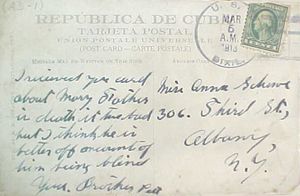 REPÚBLICA DE CUBA
TARJETA POSTAL
UNION POSTALE UNIVERSELLE
(POST CARD — CARTE POSTALE)
U. S.
MAR
6
A.M.
1913
I received you card
about Mary Stotker
is death it was bad
but I think he is
better off account of
him being blind
Your Brother
Miss Anna
306. Third St,
Albany,
N.Y.